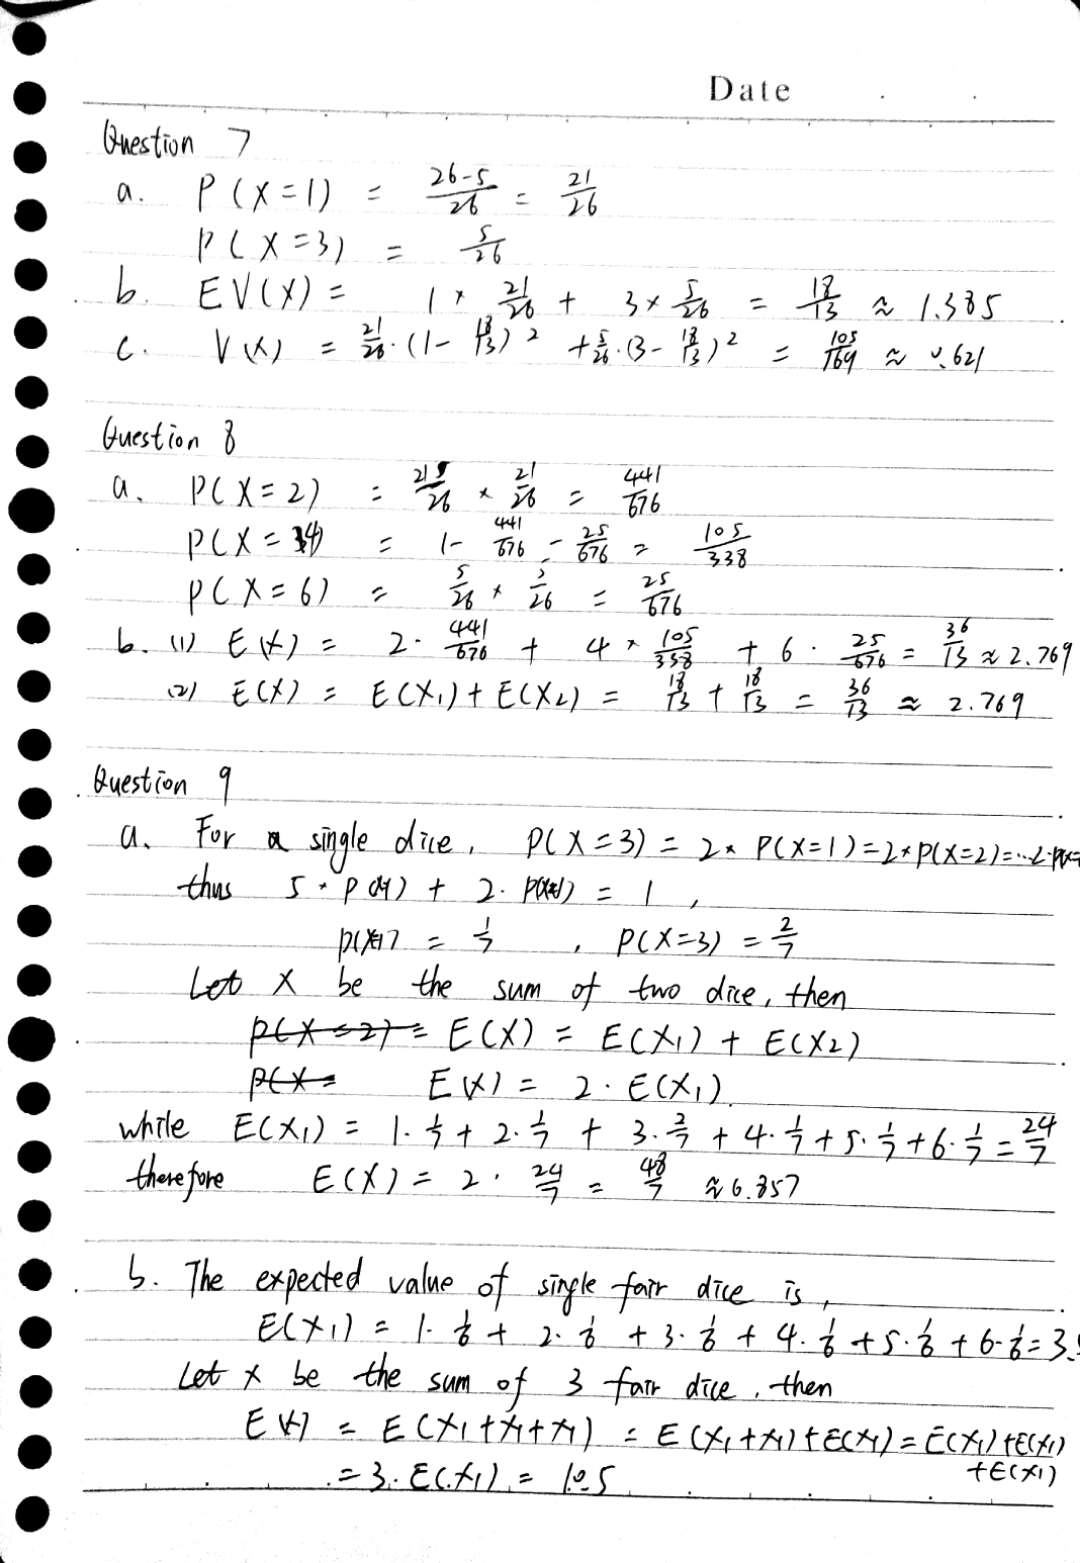 Date
Question 7
a. P(X=1) = 26-5/26 = 21/26
P(X=3) = 5/26
b. EV(X) = 1 × 21/26 + 3 × 5/26 = 18/13 ≈ 1.385
c. V(X) = 21/26·(1-18/13)² + 5/26·(3-18/13)² = 105/169 ≈ 0.621
Question 8
a. P(X=2) = 21/26 × 21/26 = 441/676
P(X=4) = 1 - 441/676 - 25/676 = 105/338
P(X=6) = 5/26 × 5/26 = 25/676
b. (1) E(X) = 2· 441/676 + 4 × 105/338 + 6 · 25/676 = 36/13 ≈ 2.769
(2) E(X) = E(X₁) + E(X₂) = 18/13 + 18/13 = 36/13 ≈ 2.769
Question 9
a. For a single dice, P(X=3) = 2× P(X=1) = 2×P(X=2)=...2·P(X=
thus 5 · P(X=1) + 2 · P(X=1) = 1,
P(X=1) = 1/7 , P(X=3) = 2/7
Let X be the sum of two dice, then
P(X=2) = E(X) = E(X₁) + E(X₂)
P(X= E(X) = 2 · E(X₁)
while E(X₁) = 1·1/7 + 2·1/7 + 3·2/7 + 4·1/7 + 5·1/7 + 6·1/7 = 24/7
therefore E(X) = 2 · 24/7 = 48/7 ≈ 6.857
b. The expected value of single fair dice is,
E(X₁) = 1·1/6 + 2·1/6 + 3·1/6 + 4·1/6 + 5·1/6 + 6·1/6 = 3.5
Let X be the sum of 3 fair dice, then
E(X) = E(X₁+X₁+X₁) = E(X₁+X₁)+E(X₁) = E(X₁)+E(X₁)
+E(X₁)
= 3·E(X₁) = 10.5